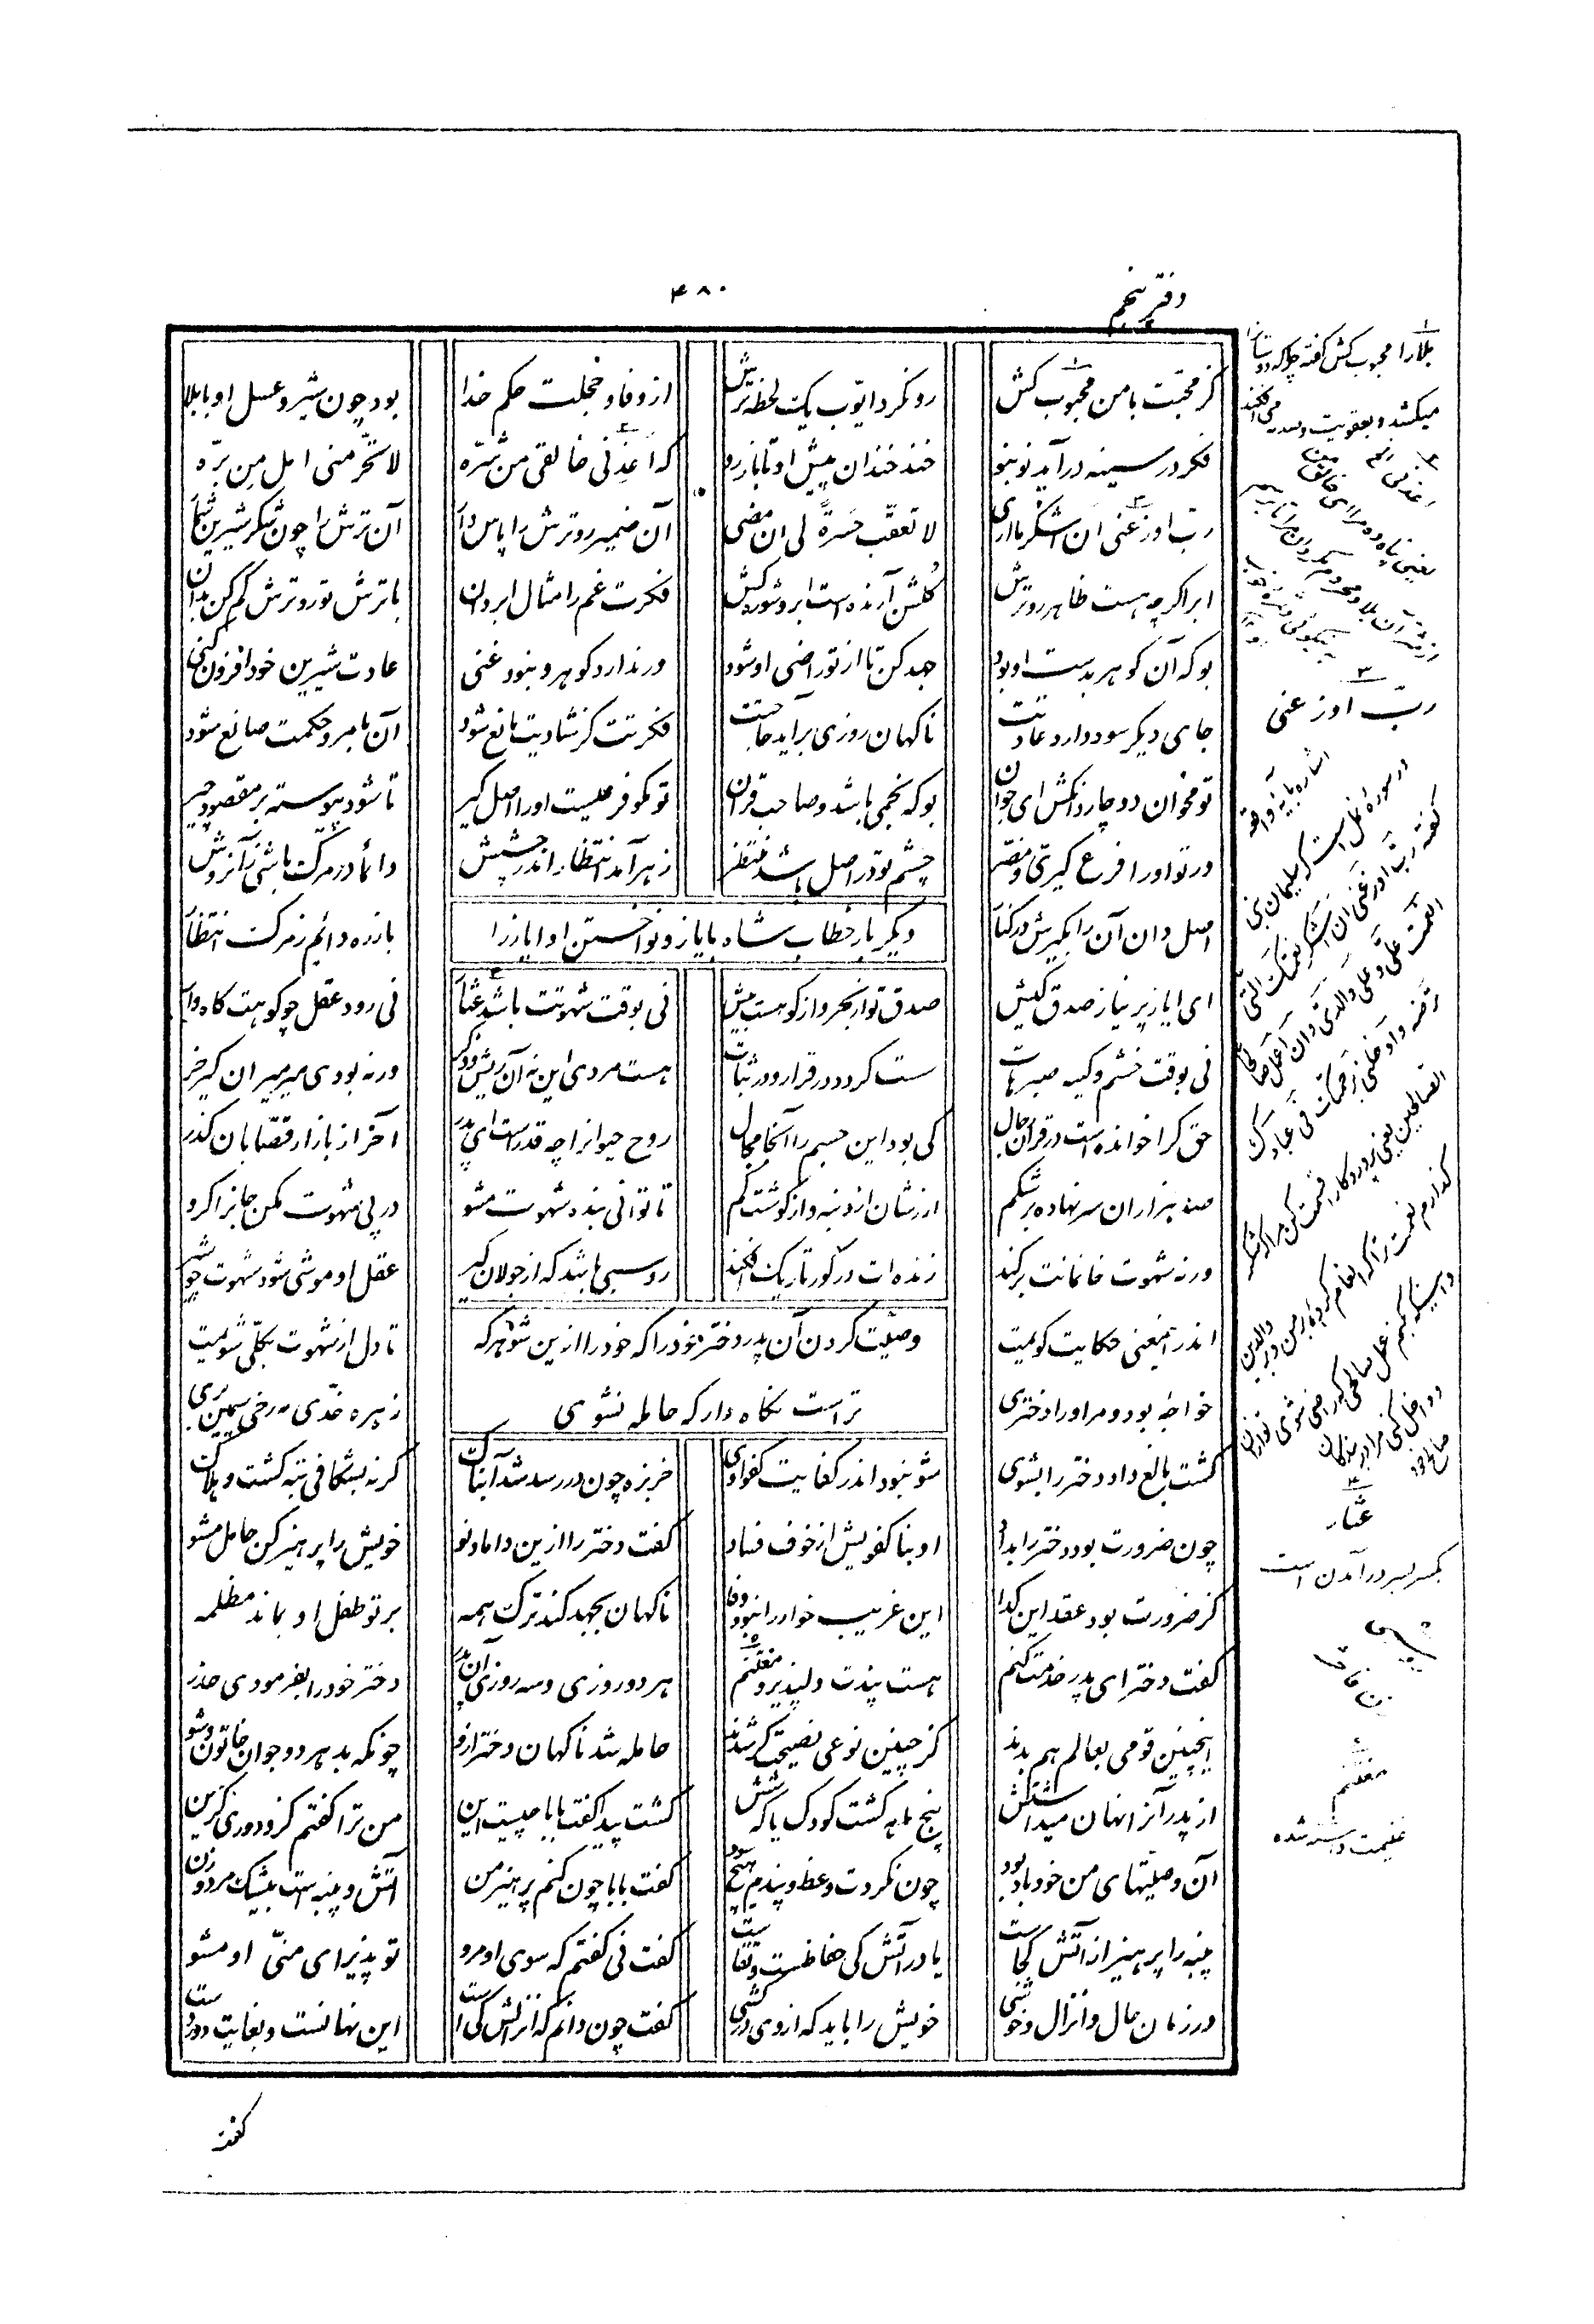 دفتر پنجم
۴۸۰
کز محبت با من محبوب کش رو نکرد ایوب یک لحظه ترش از وفا و خجلت حکم خدا بود چون شیر و عسل او با بلا
فکر در سینه در آید نو بنو خند خندان پیش او تو باز رو که اعذنی خالقی من شره لا تحرمنی امل من بره
رب اوزعنی ان اشکر ما اری لا تعقب حسرة لی ان مضی آن ضمیر رو ترش را پاس دار آن ترش را چون شکر شیرین شمار
ابر اگر چه هست ظاهر رو ترش گلشن آرنده است ابر و شوره کش فکرت غم را مثال ابر دان با ترش تو رو ترش کم کن بدان
بو که آن گوهر بدست او بود جهد کن تا از تو راضی او شود ور ندارد گوهر و نبود غنی عادت شیرین خود افزون کنی
جای دیگر سود دارد عادتت ناگهان روزی برآید حاجتت فکرتت کز شادیت مانع شود آن بامر و حکمت صانع شود
تو مخوان دو چار دانگش ای جوان بو که نجمی باشد و صاحب قران تو مگو فرعیست او را اصل گیر تا شود پیوسته بر مقصود چیر
ور تو او را فرع گیری و مضر چشم تو در اصل باشد منتظر زهر آمد انتظار اندر چشش دائما در مرگ باشی زآن روش
اصل دان آن را بگیرش در کنار باز ره دائم ز مرگ انتظار
دیگر بار خطاب شاه بایاز و نواختن او ایاز را
ای ایاز پر نیاز صدق کیش صدق تو از بحر و از کوهست بیش نی بوقت شهوتت باشد عثار نی رود عقل چو کوهت کاه وار
نی بوقت خشم و کینه صبرهات سست گردد در قرار و در ثبات هست مردی این نه آن ریش و ذکر ورنه بودی میر میران کیر خر
حق کرا خوانده است در قرآن رجال کی بود این جسم را آنجا مجال روح حیوانرا چه قدرست ای پدر آخر از بازار قصابان گذر
صد هزاران سر نهاده بر شکم ارزشان از دنبه و از گوشت کم تا توانی بنده شهوت مشو در پی شهوت مکن جانرا گرو
ورنه شهوت خانمانت بر کند زنده ات در گور تاریک افکند روسبی باشد که از جولان کیر عقل او موشی شود شهوت چو شیر
اندر اینمعنی حکایت گویمت تا دل از شهوت بکلی شویمت
وصیت کردن آن پدر دختر خود را که خود را از این شوهر که
تراست نگاه دار که حامله نشوی
خواجه بود و مر او را دختری زهره خدی مه رخی سیمین بری
گشت بالغ داد دختر را بشوی شو نبود اندر کفایت کفو اوی خربزه چون در رسد شد آبناک گر نه بشکافی تبه گشت و هلاک
چون ضرورت بود دختر را بداد او بنا کفویش از خوف فساد گفت دختر را از این داماد نو خویش را پرهیز کن حامل مشو
کز ضرورت بود عقد این گدا این غریب خوار را نبود وفا ناگهان بجهد کند ترک همه بر تو طفل او بماند مظلمه
گفت دختر ای پدر خدمت کنم هست پندت دلپذیر و مغتنم هر دو روزی و سه روزی آن پدر دختر خود را بفرمودی حذر
اینچنین قومی بعالم هم بدند کز چنین نوعی نصیحت گر شدند حامله شد ناگهان دختر ازو چونکه بد هر دو جوان خاتون و شو
از پدر آنرا نهان میداشتش پنج ماهه گشت کودک یا که شش گشت پیدا گفت بابا چیست این من ترا گفتم کزو دوری گزین
آن وصیتهای من خود باد بود چون نکردت وعظ و پندم هیچ سود گفت بابا چون کنم پرهیز من آتش و پنبه است بیشک مرد و زن
پنبه را پرهیز از آتش کجاست یا در آتش کی حفاظست و تقاست گفت نی گفتم که سوی او مرو تو پذیرای منی او مشو
در زمان حال و انزال و خوشی خویش را باید که از وی درکشی گفت چون دانم که انزالش کی است این نهانست و بغایت دور دست
گفت
۱
بلا را محبوب کش گفته چرا که دوستانرا
میکشد و بعقوبت و سد می افکند
۲
اعذنی الخ
۳
رب اوزعنی
اشاره بآیه واقعه
در سوره نمل است که سلیمان نبی
گفته رب اوزعنی ان اشکر نعمتک التی
انعمت علی و علی والدی و ان اعمل صالحا
ترضه و ادخلنی برحمتک فی عبادک
الصالحین یعنی پروردگارا قسمت کن مرا که شکر
گذارم نعمت ترا که انعام کرده بر من و بر والدین
و اینکه بکنم عمل صالحی که راضی شوی تو از آن
و داخل کنی مرا در بندگان
صالح خود
۴
عثار
بکسر بسر در آمدن است
روسپی
زن فاحشه
۵
مغتنم
غنیمت دانسته شده